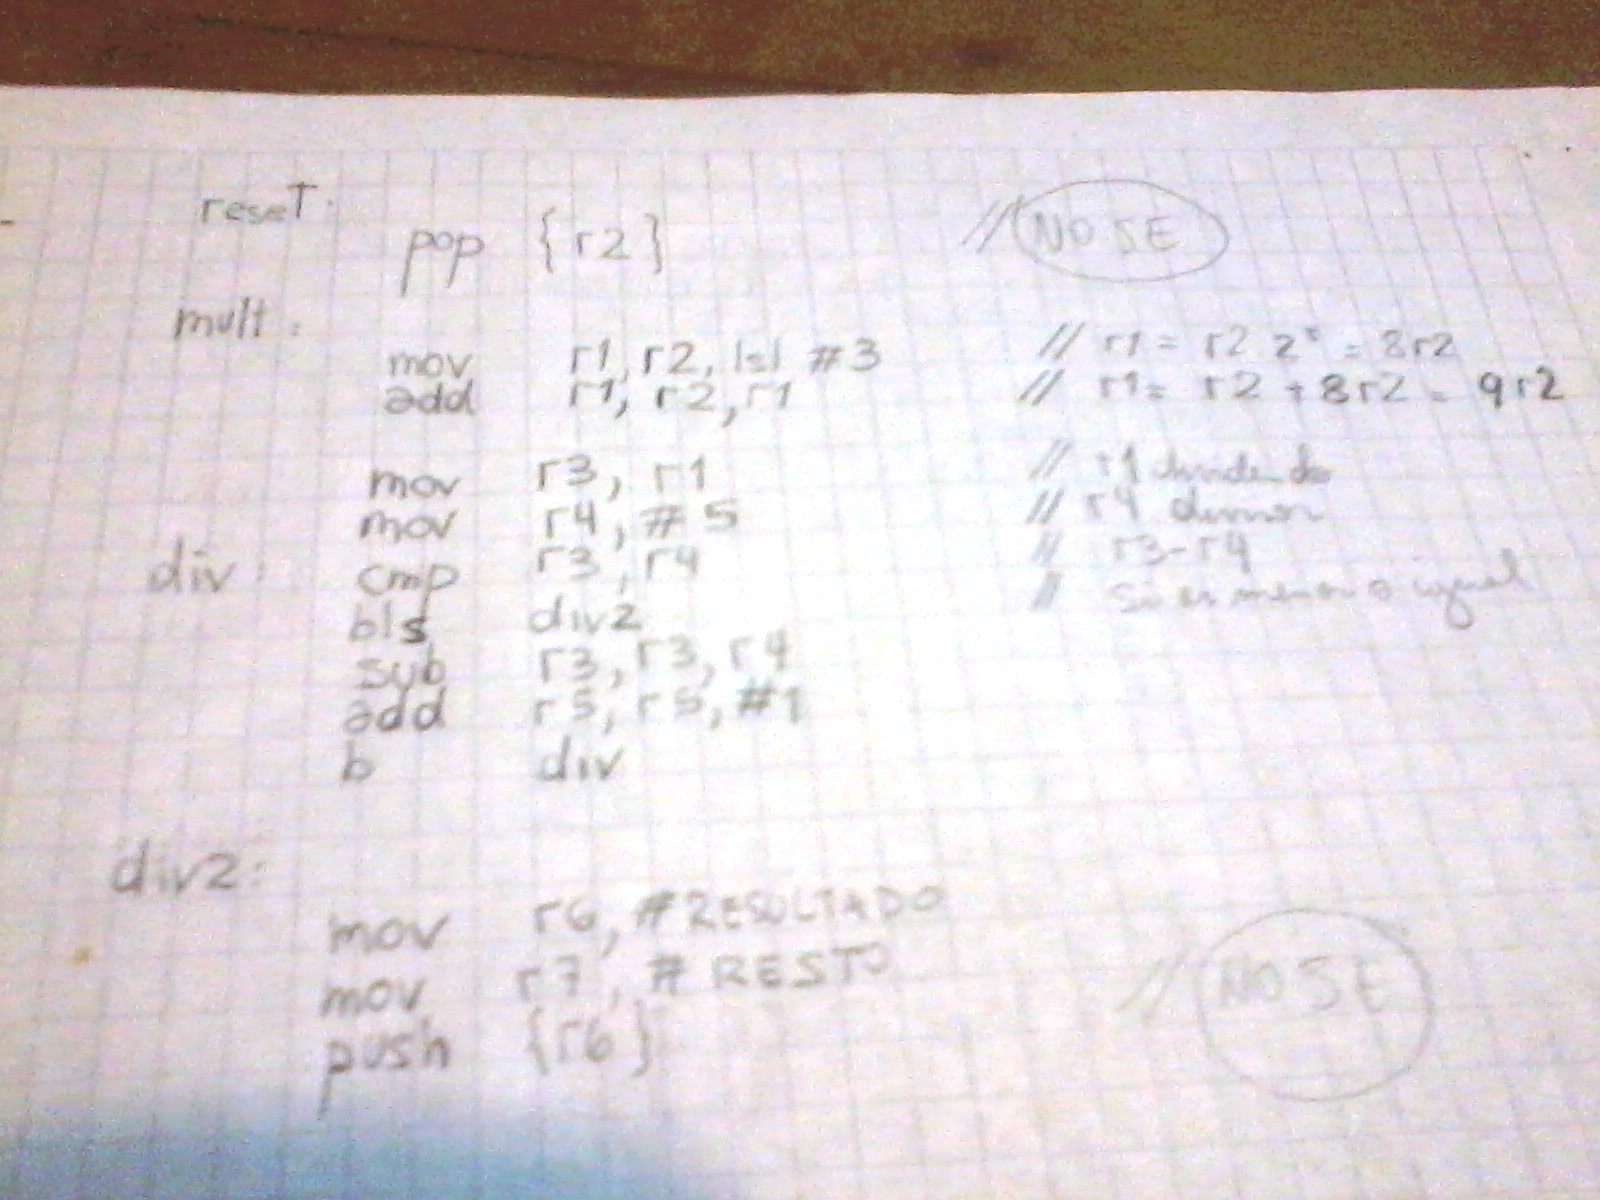 reset:
pop {r2} // NO SE
mult:
mov r1, r2, lsl #3 // r1 = r2 2³ = 8r2
add r1, r2, r1 // r1 = r2 + 8r2 = 9r2
mov r3, r1 // r1 dividendo
mov r4, #5 // r4 divisor
div: cmp r3, r4 // r3-r4
bls div2 // si es menor o igual
sub r3, r3, r4
add r5, r5, #1
b div
div2:
mov r6, #RESULTADO
mov r7, #RESTO // NO SE
push {r6}